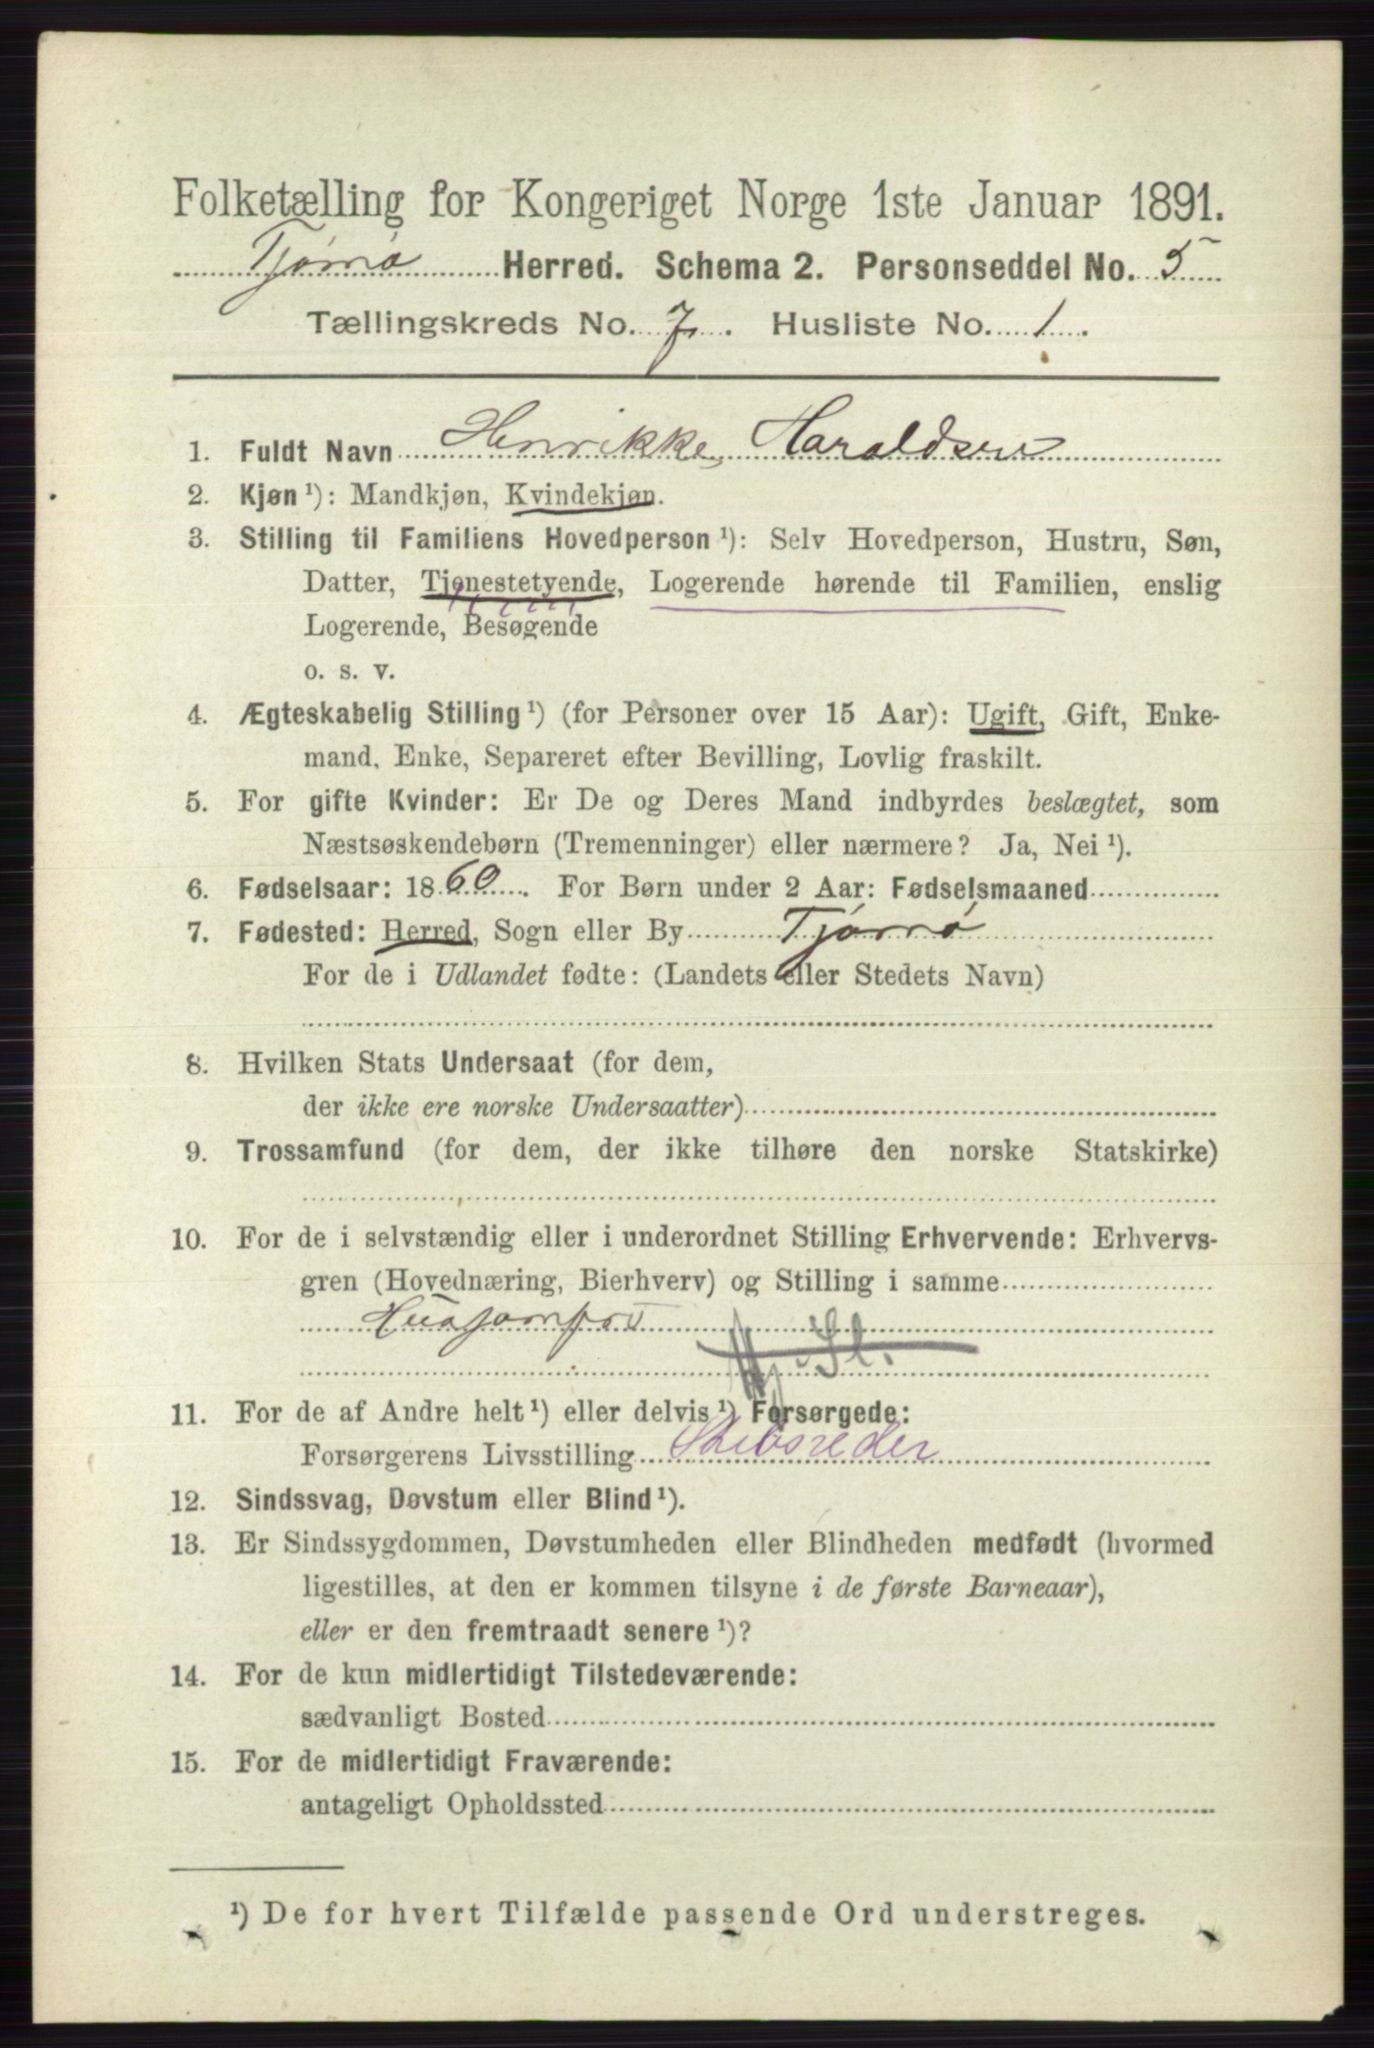 Folketælling for Kongeriget Norge 1ste Januar 1891.
Tjømø Herred. Schema 2. Personseddel No. 5
Tællingskreds No. 7. Husliste No. 1.
1. Fuldt Navn Henrikke Haraldsen
2. Kjøn ¹): Mandkjøn, Kvindekjøn.
3. Stilling til Familiens Hovedperson ¹): Selv Hovedperson, Hustru, Søn,
Datter, Tjenestetyende, Logerende hørende til Familien, enslig
Logerende, Besøgende
o. s. v.
4. Ægteskabelig Stilling ¹) (for Personer over 15 Aar): Ugift, Gift, Enke-
mand, Enke, Separeret efter Bevilling, Lovlig fraskilt.
5. For gifte Kvinder: Er De og Deres Mand indbyrdes beslægtet, som
Næstsøskendebørn (Tremenninger) eller nærmere? Ja, Nei ¹).
6. Fødselsaar: 1860. For Børn under 2 Aar: Fødselsmaaned
7. Fødested: Herred, Sogn eller By Tjømø
For de i Udlandet fødte: (Landets eller Stedets Navn)
8. Hvilken Stats Undersaat (for dem,
der ikke ere norske Undersaatter)
9. Trossamfund (for dem, der ikke tilhøre den norske Statskirke)
10. For de i selvstændig eller i underordnet Stilling Erhvervende: Erhvervs-
gren (Hovednæring, Bierhverv) og Stilling i samme
Husjomfru
Sl.
11. For de af Andre helt ¹) eller delvis ¹) Forsørgede:
Forsørgerens Livsstilling Skibsreder
12. Sindssvag, Døvstum eller Blind ¹).
13. Er Sindssygdommen, Døvstumheden eller Blindheden medfødt (hvormed
ligestilles, at den er kommen tilsyne i de første Barneaar),
eller er den fremtraadt senere ¹)?
14. For de kun midlertidigt Tilstedeværende:
sædvanligt Bosted
15. For de midlertidigt Fraværende:
antageligt Opholdssted
¹) De for hvert Tilfælde passende Ord understreges.